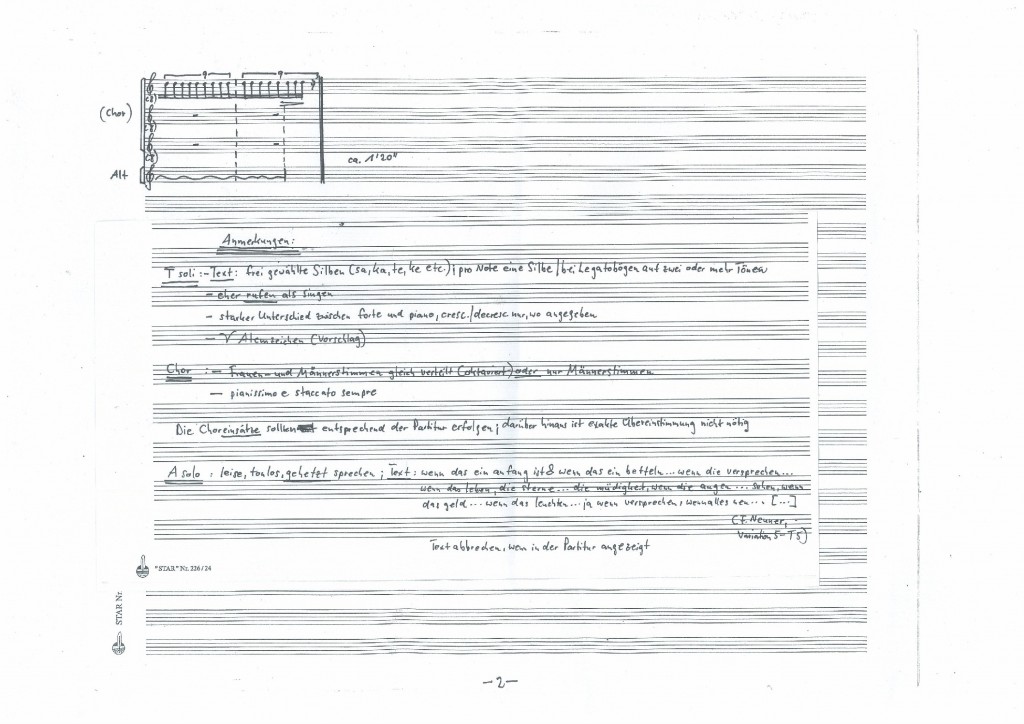 9 9
(Chor)
(8)
(8)
(8)
ca. 1'20"
Alt
Anmerkungen:
T soli : – Text: frei gewählte Silben (sa, ka, te, ke etc.); pro Note eine Silbe / bei Legatobögen auf zwei oder mehr Tönen
– eher rufen als singen
– starker Unterschied zwischen forte und piano, cresc./decresc nur, wo angegeben
– V Atemzeichen (Vorschlag)
Chor : – Frauen- und Männerstimmen gleich verteilt (oktaviert) oder nur Männerstimmen
– pianissimo e staccato sempre
Die Choreinsätze sollten entsprechend der Partitur erfolgen; darüber hinaus ist exakte Übereinstimmung nicht nötig
A solo : leise, tonlos, gehetzt sprechen; Text: wenn das ein anfang ist & wenn das ein betteln... wenn die versprechen...
wenn das leben, die sterne... die müdigkeit, wenn die augen... sehen, wenn
das geld... wenn das leuchten... ja wenn versprechen, wenn alles nen... [...]
(F. Neuner,
Variation 5 – T5)
Text abbrechen, wenn in der Partitur angezeigt
"STAR" Nr. 236/24
STAR Nr.
– 2 –